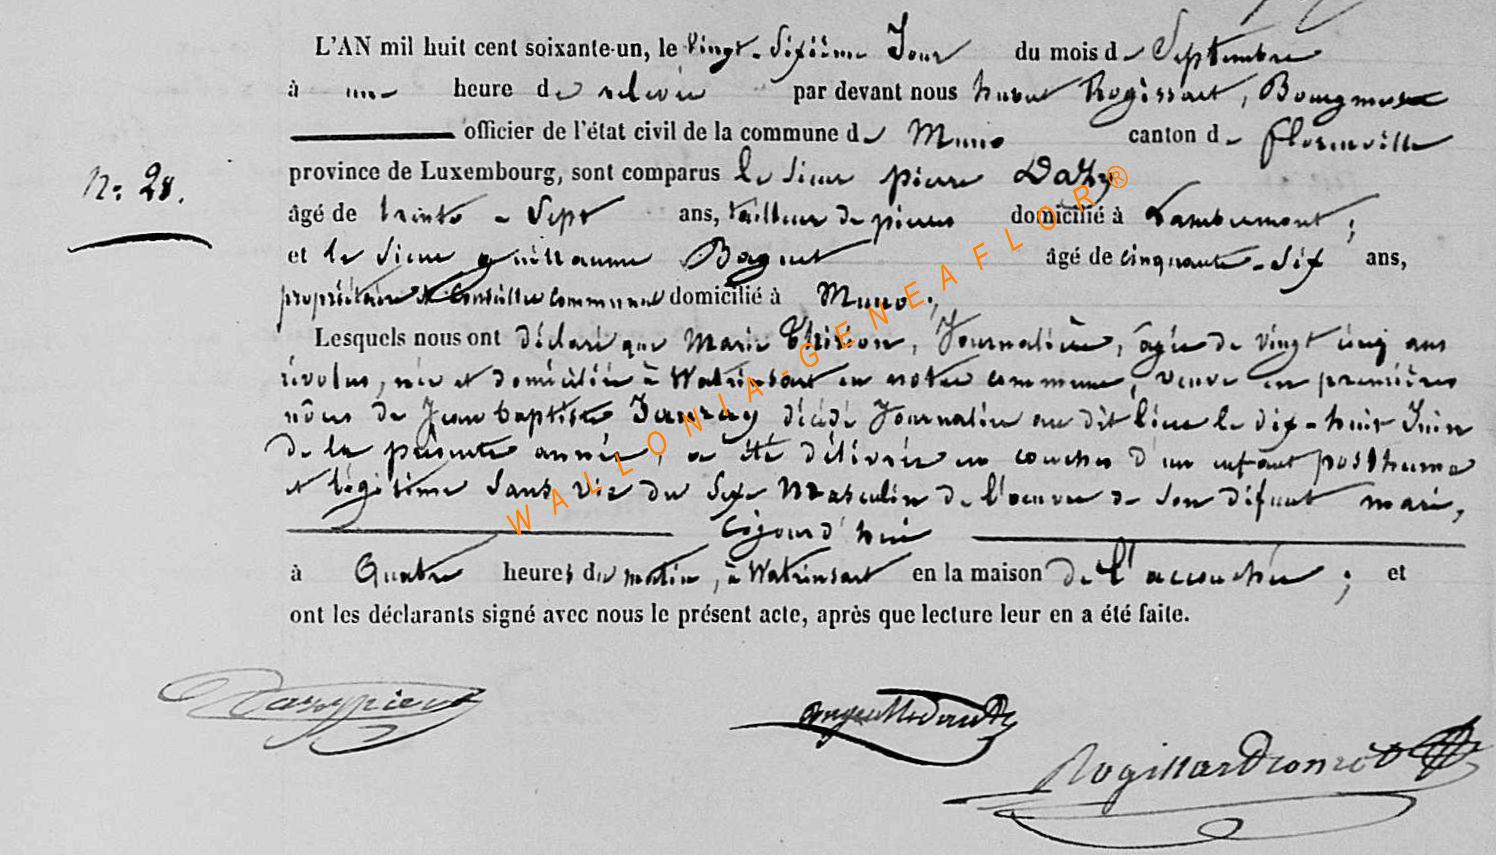 L'AN mil huit cent soixante-un, le vingt-sixième Jour du mois de Septembre
à une heure de relevée par devant nous hubert Rogissart, Bourgmestre
officier de l'état civil de la commune de Muno canton de florenville
N: 28.
province de Luxembourg, sont comparus le sieur pierre Dazy
âgé de trente-sept ans, tailleur de pierres domicilié à Lambermont;
et le sieur guillaume Baguet âgé de cinquante-six ans,
propriétaire & Conseiller communal domicilié à Muno;
Lesquels nous ont déclaré que Marie Thirion, Journalière, âgée de vingt cinq ans
révolus, née et domiciliée à Watrinsart en notre commune, veuve en premières
nôces de Jean baptiste Jauzay décédé Journalier au dit lieu le dix-huit Juin
de la présente année, a été délivrée en couches d'un enfant posthume
et légitime sans vie du sexe Masculin de l'oeuvre de son défunt mari,
cejourd'hui
à Quatre heures du matin, à Watrinsart en la maison de l'accouchée; et
ont les déclarants signé avec nous le présent acte, après que lecture leur en a été faite.
WALLONIA-GENEAFLOR®
Dazy pierre
Rogissart